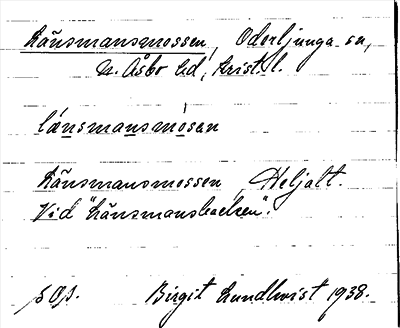 Länsmansmossen, Oderljunga sn,
N. Åsbo hd, Krist. l.
länsmansmosen
Länsmansmossen Heljalt.
Vid "Länsmansbacken".
Birgit Lundkvist 1938.